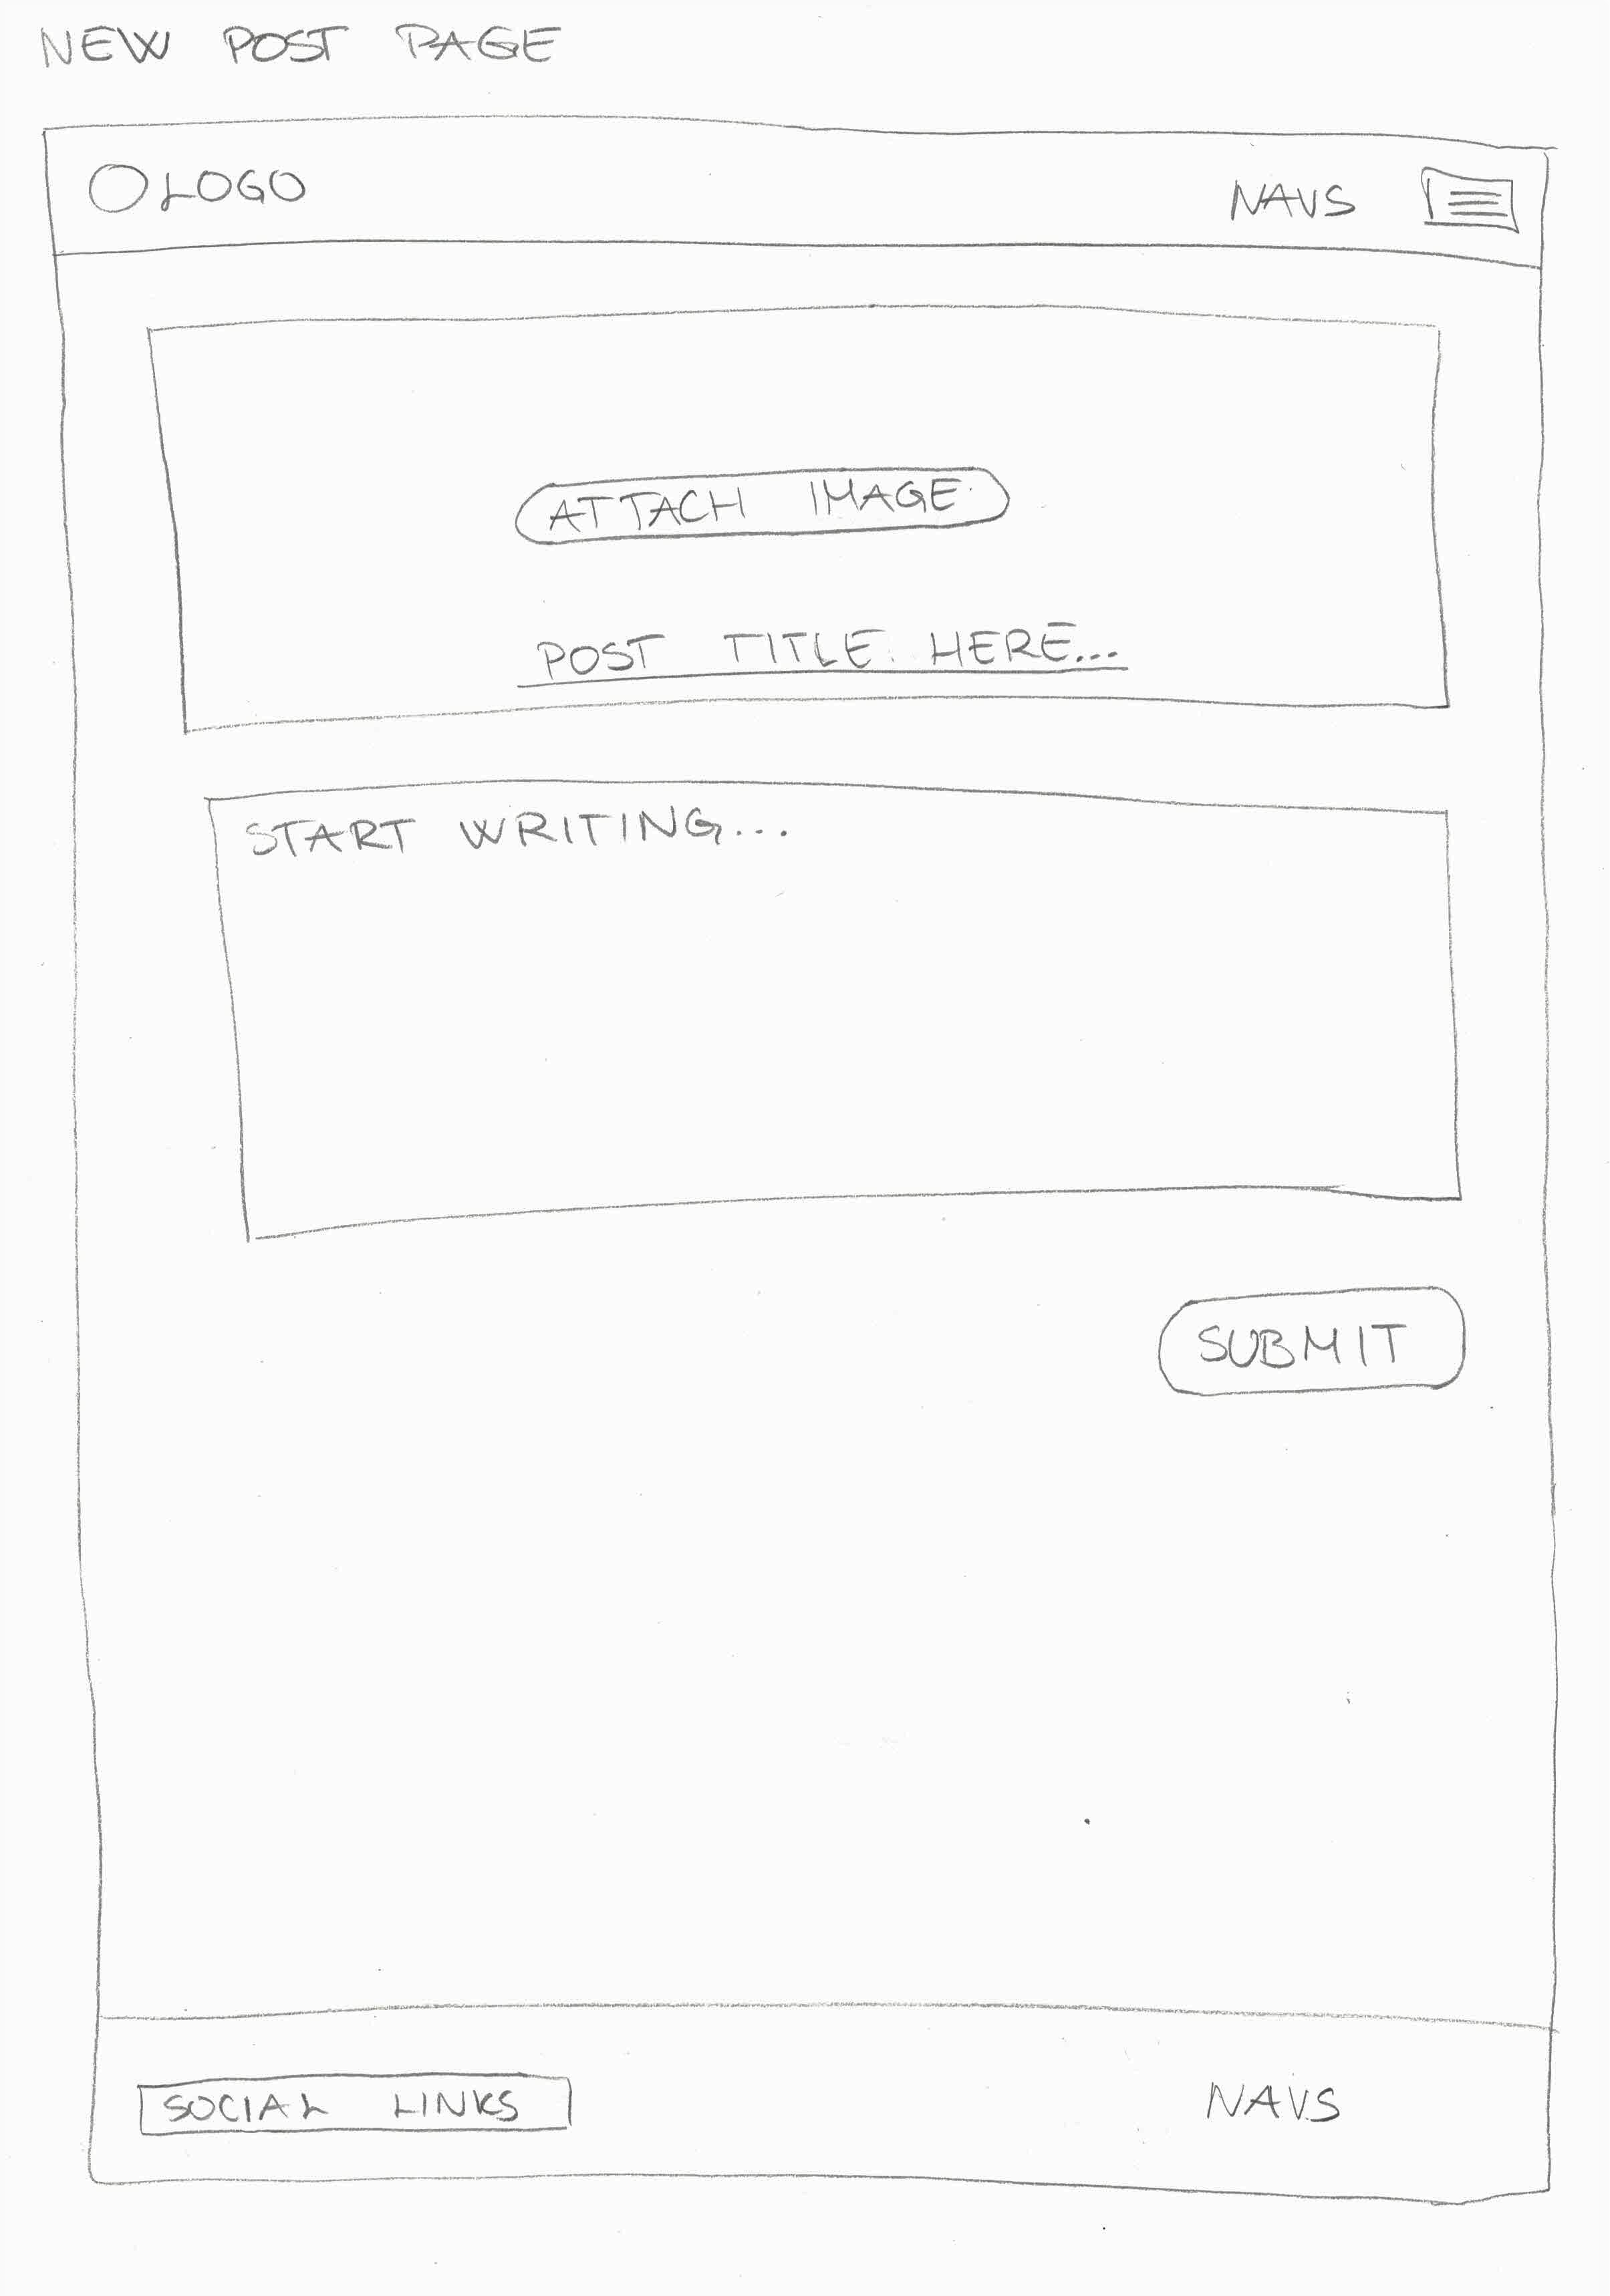 NEW POST PAGE
LOGO NAVS
ATTACH IMAGE
POST TITLE HERE...
START WRITING...
SUBMIT
SOCIAL LINKS NAVS